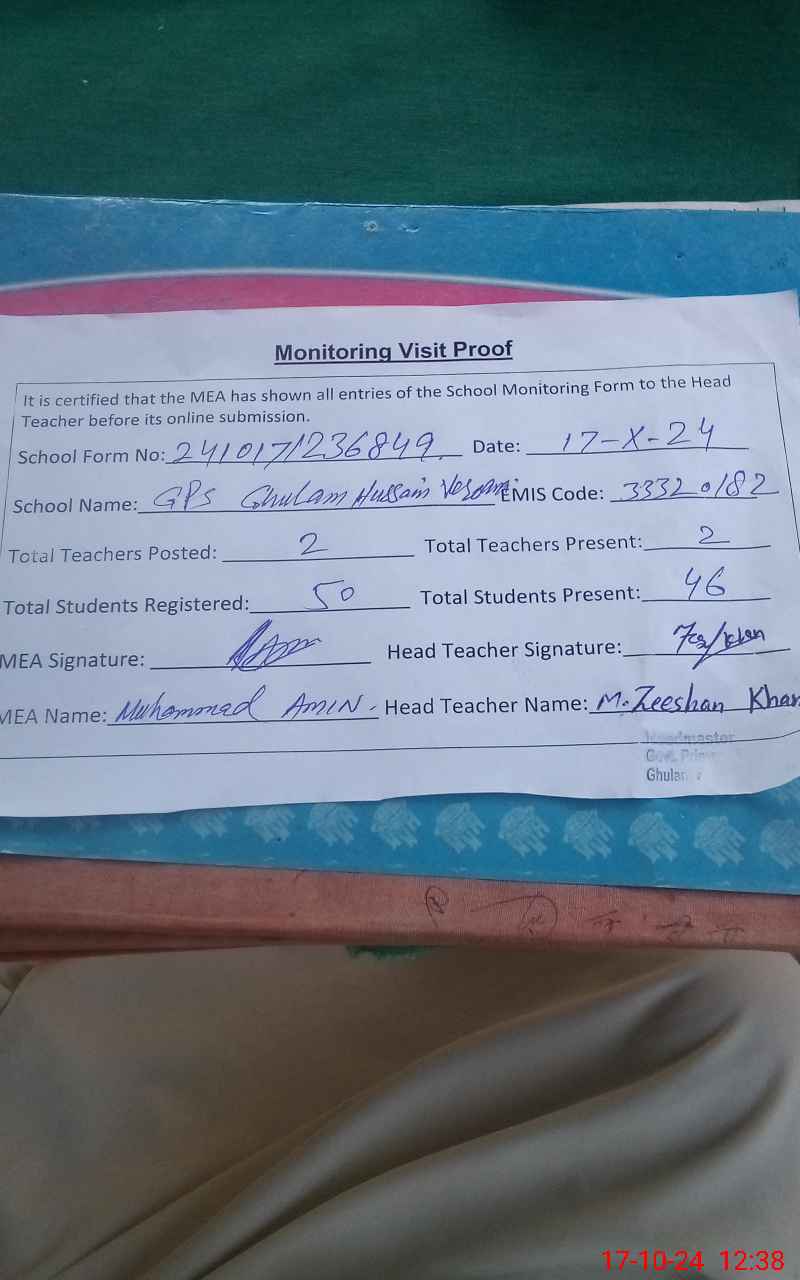 Monitoring Visit Proof
It is certified that the MEA has shown all entries of the School Monitoring Form to the Head
Teacher before its online submission.
School Form No: 2410171236849 Date: 17-X-24
School Name: GPS Ghulam Hussain EMIS Code: 33320182
Total Teachers Posted: 2 Total Teachers Present: 2
Total Students Registered: 50 Total Students Present: 46
MEA Signature: Head Teacher Signature:
MEA Name: Muhammad AMIN. Head Teacher Name: M. Zeeshan Khan
Headmaster
Govt. Prim
Ghulam
17-10-24 12:38